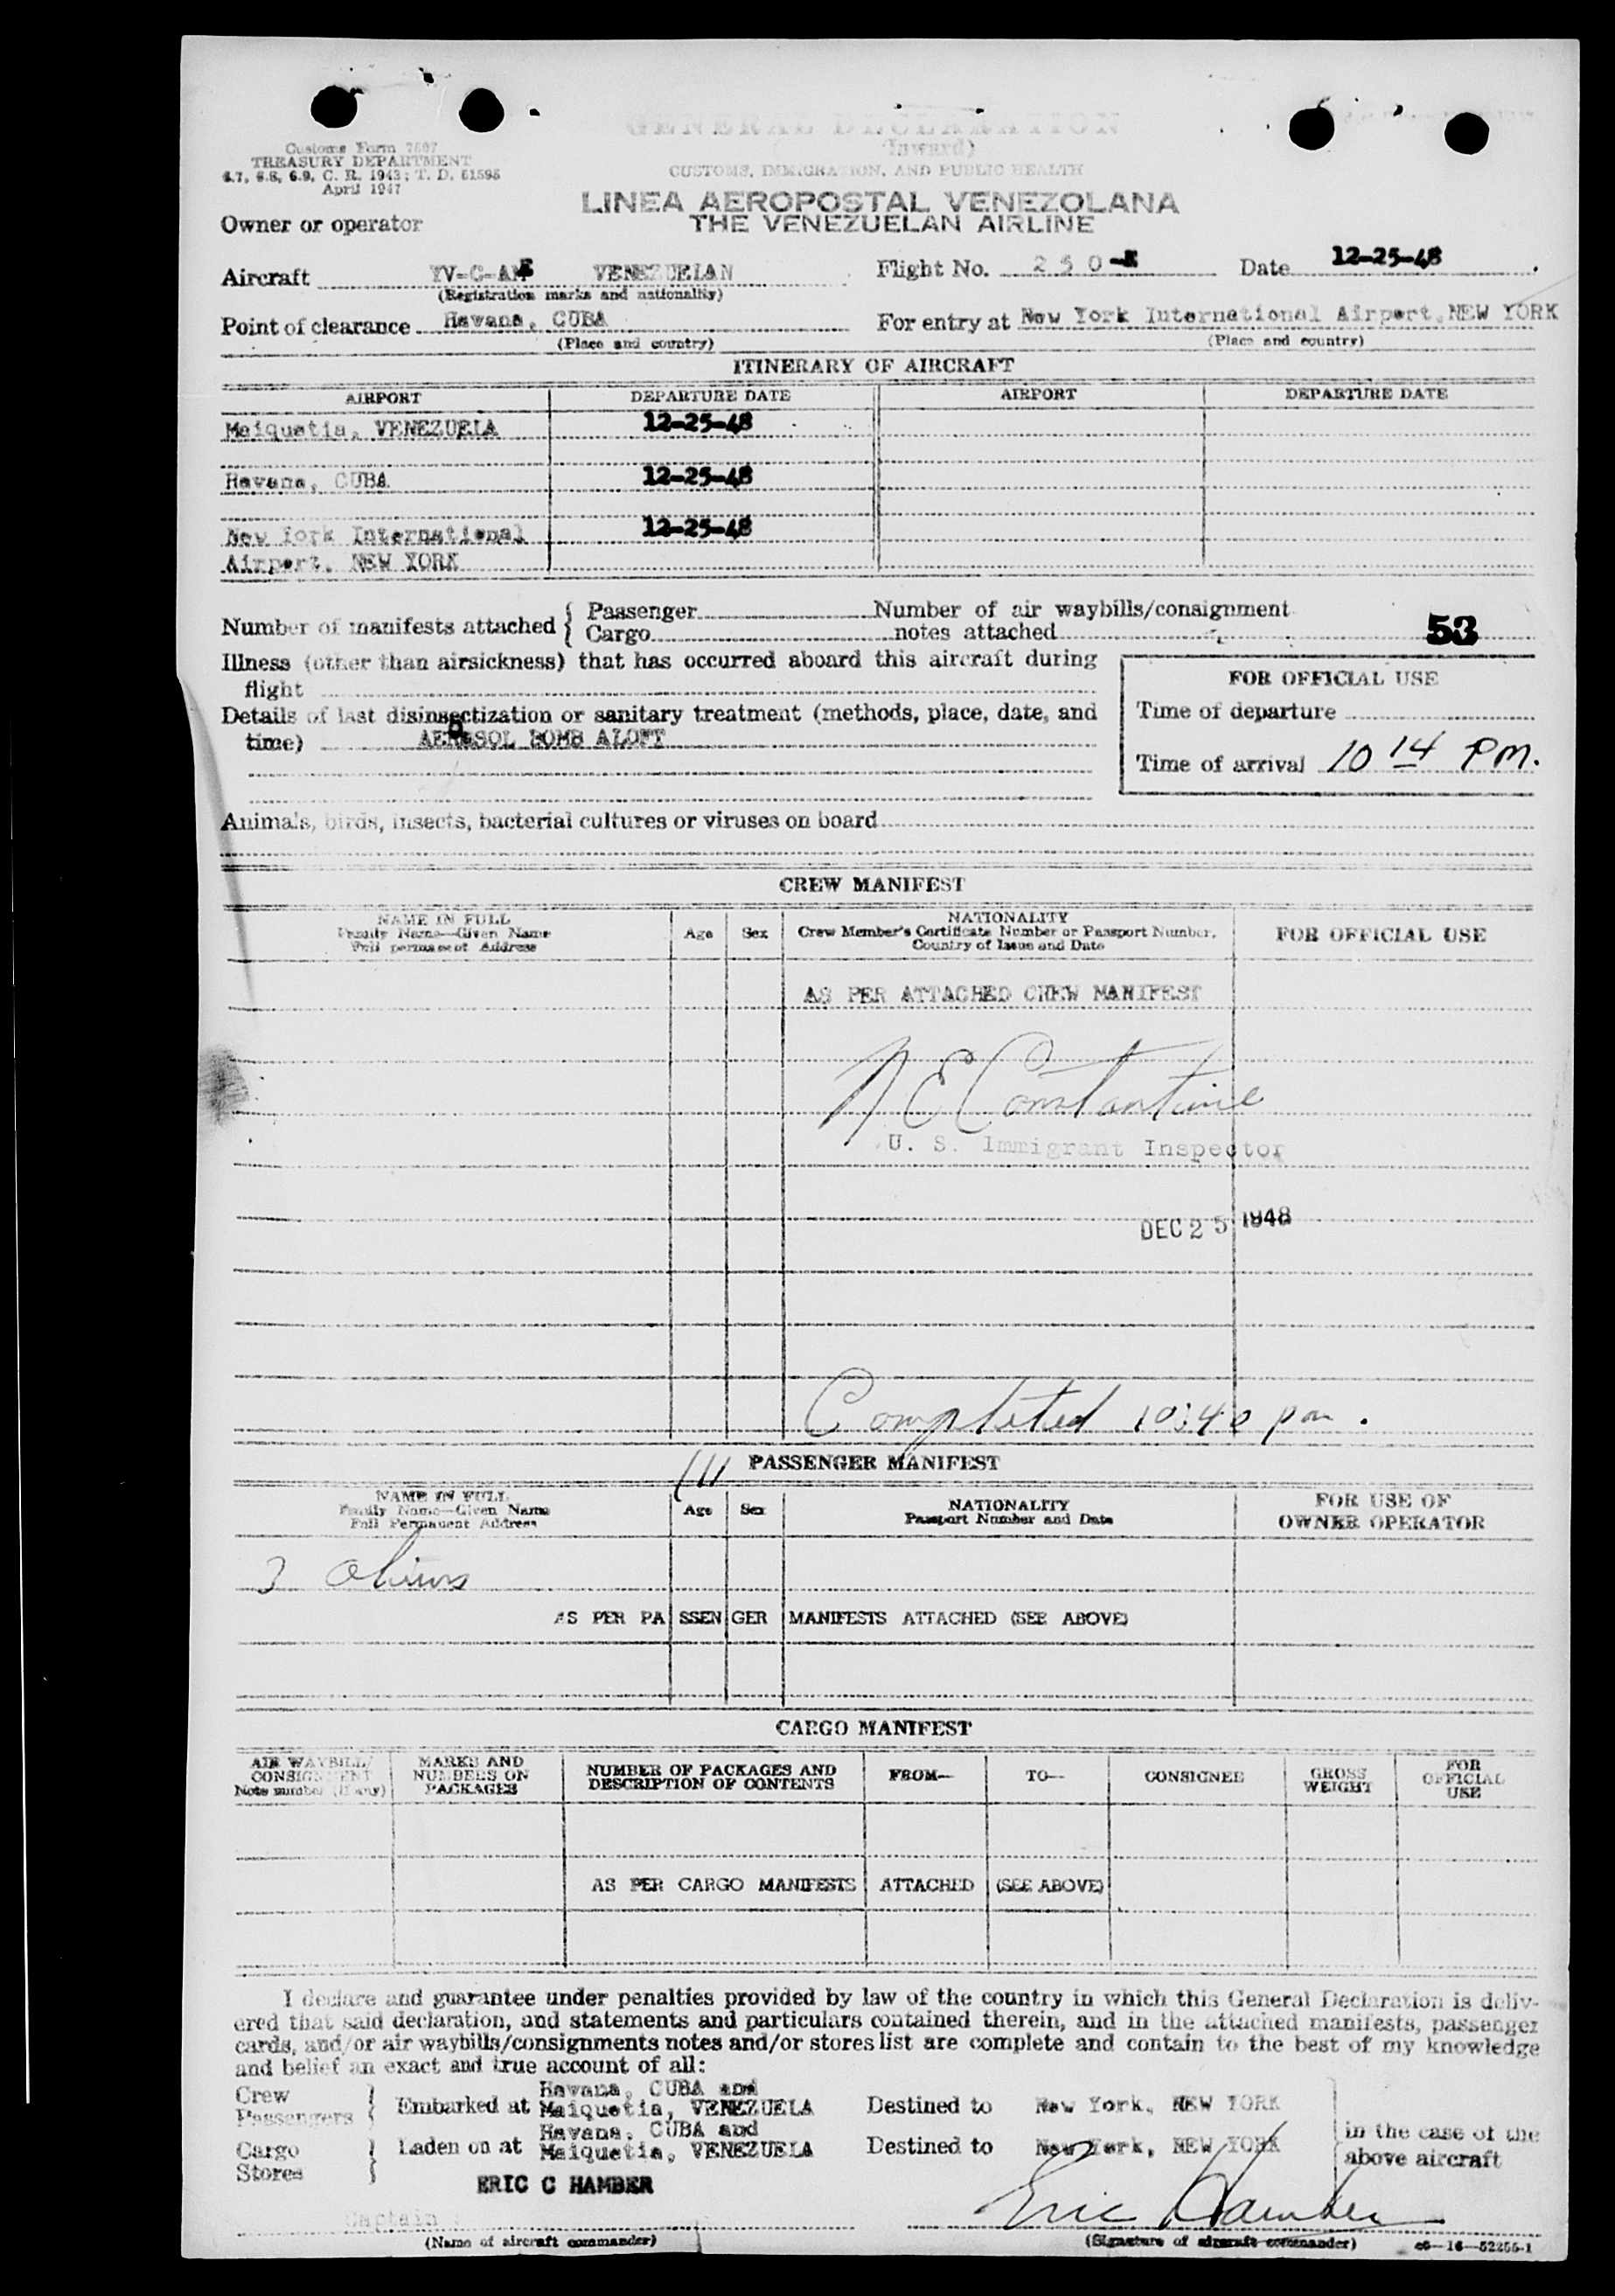 GENERAL DECLARATION
(Inward)
CUSTOMS, IMMIGRATION, AND PUBLIC HEALTH
Customs Form 7507
TREASURY DEPARTMENT
6.7, 6.8, 6.9, C. R. 1943; T. D. 51595
April 1947
LINEA AEROPOSTAL VENEZOLANA
THE VENEZUELAN AIRLINE
Owner or operator
Aircraft YV-C-AME VENEZUELAN Flight No. 250-X Date 12-25-48
(Registration marks and nationality)
Point of clearance Havana, CUBA For entry at New York International Airport, NEW YORK
(Place and country) (Place and country)
ITINERARY OF AIRCRAFT
AIRPORT DEPARTURE DATE AIRPORT DEPARTURE DATE
Maiquetia, VENEZUELA 12-25-48
Havana, CUBA 12-25-48
New York International 12-25-48
Airport, NEW YORK
Number of manifests attached { Passenger Number of air waybills/consignment
Cargo notes attached 53
Illness (other than airsickness) that has occurred aboard this aircraft during
flight
Details of last disinsectization or sanitary treatment (methods, place, date, and
time) AEROSOL BOMB ALOFT
FOR OFFICIAL USE
Time of departure
Time of arrival 10 14 PM.
Animals, birds, insects, bacterial cultures or viruses on board
CREW MANIFEST
NAME IN FULL
Family Name—Given Name
Full permanent Address
Age Sex
NATIONALITY
Crew Member's Certificate Number or Passport Number,
Country of Issue and Date
FOR OFFICIAL USE
AS PER ATTACHED CREW MANIFEST
N E Constantine
U. S. Immigrant Inspector
DEC 25 1948
Completed 10:40 pm.
PASSENGER MANIFEST
NAME IN FULL
Family Name—Given Name
Full Permanent Address
Age Sex
NATIONALITY
Passport Number and Date
FOR USE OF
OWNER OPERATOR
3 aliens
AS PER PASSENGER MANIFESTS ATTACHED (SEE ABOVE)
CARGO MANIFEST
AIR WAYBILL/
CONSIGNMENT
Note number (if any)
MARKS AND
NUMBERS ON
PACKAGES
NUMBER OF PACKAGES AND
DESCRIPTION OF CONTENTS
FROM— TO— CONSIGNEE
GROSS
WEIGHT
FOR
OFFICIAL
USE
AS PER CARGO MANIFESTS ATTACHED (SEE ABOVE)
I declare and guarantee under penalties provided by law of the country in which this General Declaration is deliv-
ered that said declaration, and statements and particulars contained therein, and in the attached manifests, passenger
cards, and/or air waybills/consignments notes and/or stores list are complete and contain to the best of my knowledge
and belief an exact and true account of all:
Crew
Passengers
Embarked at Havana, CUBA and
Maiquetia, VENEZUELA
Destined to New York, NEW YORK
Cargo
Stores
Laden on at Havana, CUBA and
Maiquetia, VENEZUELA
Destined to New York, NEW YORK
in the case of the
above aircraft
ERIC C HAMBER
Captain
Eric Hamber
(Name of aircraft commander) (Signature of aircraft commander) c6—16—52255-1